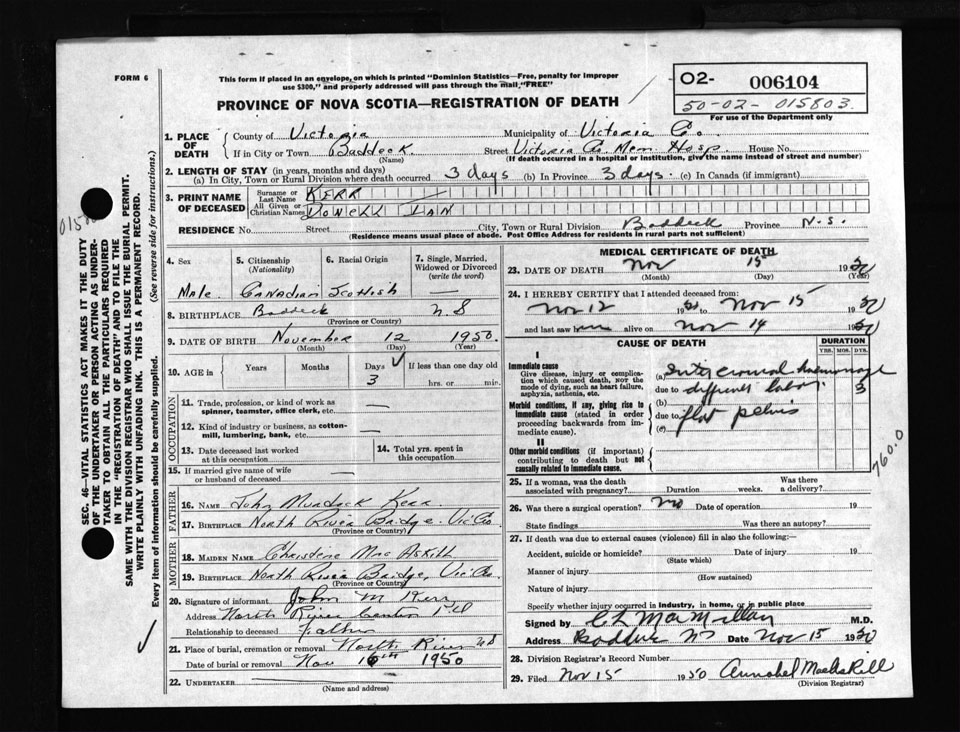 FORM 6
This form if placed in an envelope, on which is printed "Dominion Statistics—Free, penalty for improper
use $300," and properly addressed will pass through the mail, "FREE"
PROVINCE OF NOVA SCOTIA—REGISTRATION OF DEATH
O2- 006104
50-02- 015803
For use of the Department only
1. PLACE OF DEATH
County of Victoria Municipality of Victoria Co.
If in City or Town Baddeck Street Victoria Co Mem. Hosp. House No.
(Name) (If death occurred in a hospital or institution, give the name instead of street and number)
2. LENGTH OF STAY (in years, months and days)
(a) In City, Town or Rural Division where death occurred 3 days (b) In Province 3 days. (c) In Canada (if immigrant)
3. PRINT NAME OF DECEASED
Surname or Last Name KERR
All Given or Christian Names IAN
RESIDENCE No. Street City, Town or Rural Division Baddeck Province N.S.
(Residence means usual place of abode. Post Office Address for residents in rural parts not sufficient)
SEC. 46—VITAL STATISTICS ACT MAKES IT THE DUTY
OF THE UNDERTAKER OR PERSON ACTING AS UNDER-
TAKER TO OBTAIN ALL THE PARTICULARS REQUIRED
IN THE "REGISTRATION OF DEATH" AND TO FILE THE
SAME WITH THE DIVISION REGISTRAR WHO SHALL ISSUE THE BURIAL PERMIT.
WRITE PLAINLY WITH UNFADING INK. THIS IS A PERMANENT RECORD.
Every item of information should be carefully supplied. (See reverse side for instructions.)
4. Sex 5. Citizenship (Nationality) 6. Racial Origin 7. Single, Married, Widowed or Divorced (write the word)
Male Canadian Scottish —
8. BIRTHPLACE Baddeck N S
(Province or Country)
9. DATE OF BIRTH November 12 1950
(Month) (Day) (Year)
10. AGE in Years Months Days If less than one day old
3 hrs. or min.
OCCUPATION
11. Trade, profession, or kind of work as
spinner, teamster, office clerk, etc. —
12. Kind of industry or business, as cotton-
mill, lumbering, bank, etc. —
13. Date deceased last worked
at this occupation
14. Total yrs. spent in
this occupation
15. If married give name of wife
or husband of deceased —
FATHER
16. Name John Murdock Kerr
17. Birthplace North River Bridge. Vic Co
(Province or Country)
MOTHER
18. Maiden Name Christene Mac Askill
19. Birthplace North River Bridge, Vic Co.
(Province or Country)
20. Signature of informant John M Kerr
Address North River
Relationship to deceased Father
21. Place of burial, cremation or removal North River NS
Date of burial or removal Nov 16th 1950
22. UNDERTAKER —
(Name and address)
MEDICAL CERTIFICATE OF DEATH
23. DATE OF DEATH Nov 15 1950
(Month) (Day) (Year)
24. I HEREBY CERTIFY that I attended deceased from:
Nov 12 1950 to Nov 15 1950
and last saw him alive on Nov 14 1950
CAUSE OF DEATH DURATION
YRS. MOS. DYS.
I
Immediate cause
Give disease, injury or complica-
tion which caused death, NOT the
mode of dying, such as heart failure,
asphyxia, asthenia, etc.
(a)
due to labor. 3
Morbid conditions, if any, giving rise to
immediate cause (stated in order
proceeding backwards from im-
mediate cause).
(b)
due to flat pelvis
(c)
II
Other morbid conditions (if important)
contributing to death but not
causally related to immediate cause.
760.0
25. If a woman, was the death
associated with pregnancy? Duration weeks. Was there
a delivery?
26. Was there a surgical operation? no Date of operation 19
State findings Was there an autopsy?
27. If death was due to external causes (violence) fill in also the following:—
Accident, suicide or homicide? Date of injury 19
(State which)
Manner of injury
(How sustained)
Nature of injury
Specify whether injury occurred in industry, in home, or in public place
Signed by C L MacMillan M.D.
Address Baddeck NS Date Nov 15 1950
28. Division Registrar's Record Number
29. Filed Nov 15 1950 Annabel MacAskill
(Division Registrar)